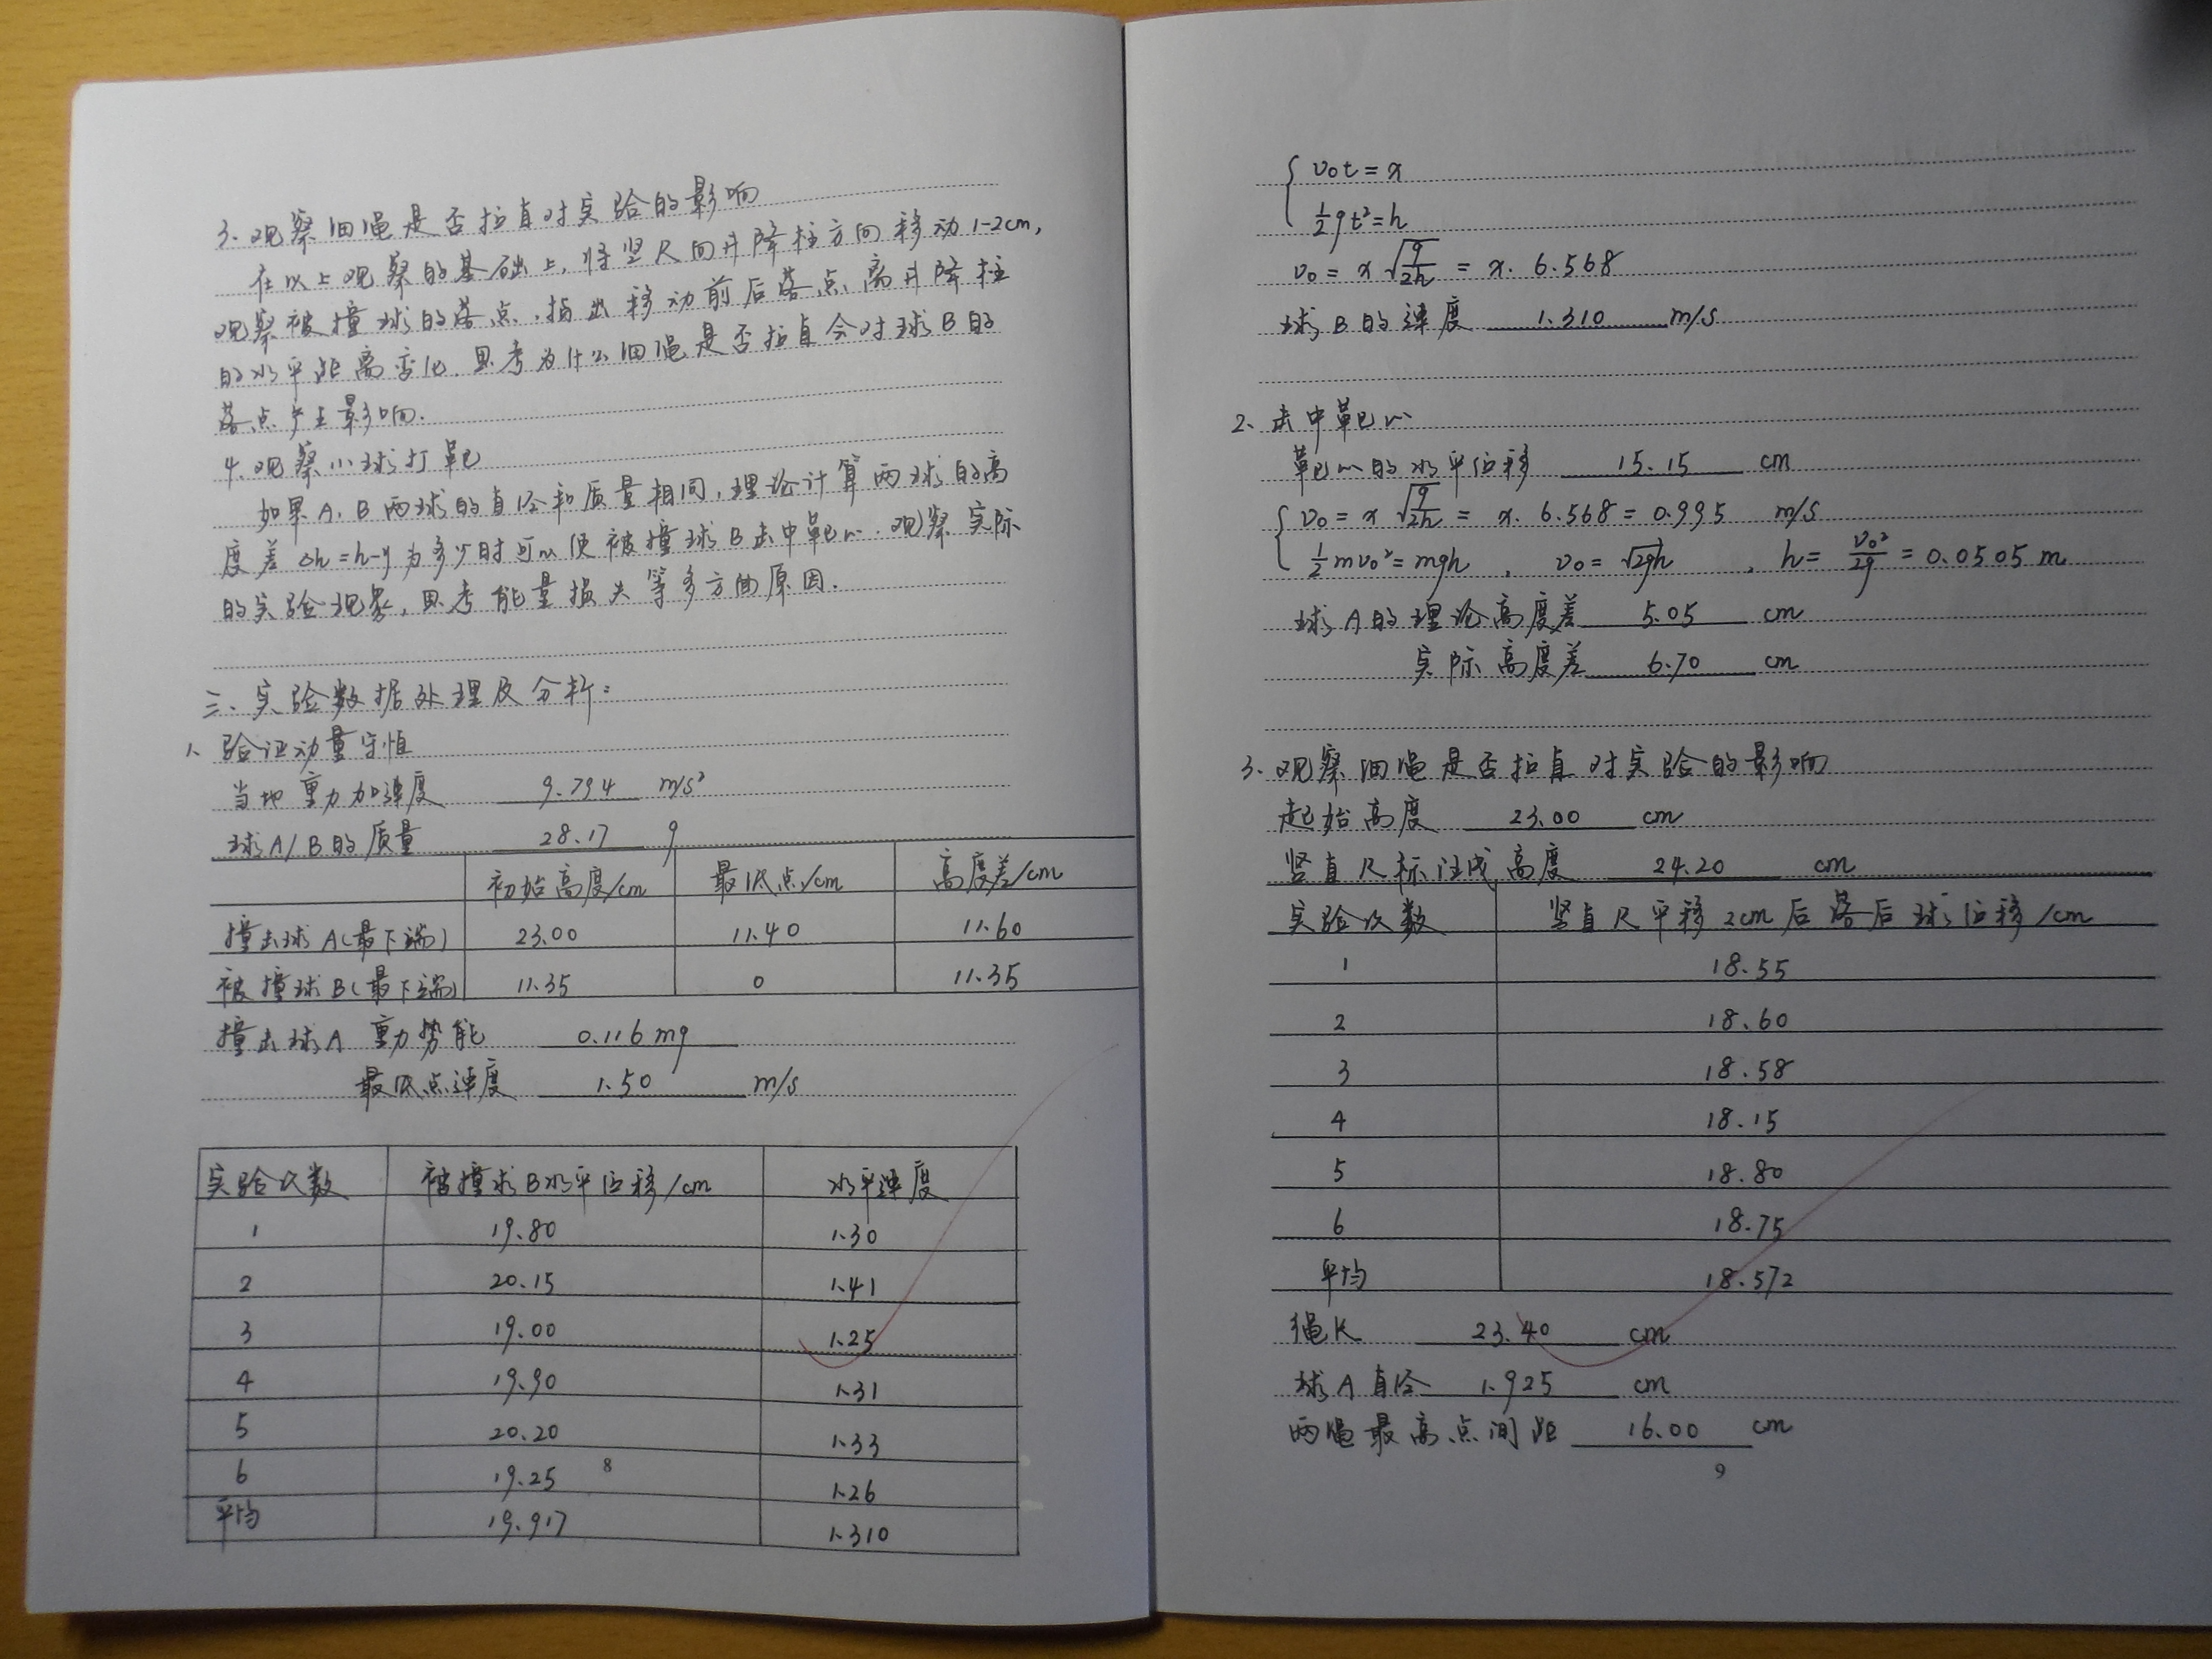 3. 观察细绳是否拉直对实验的影响
在以上观察的基础上,将竖尺向升降柱方向移动1-2cm,
观察被撞球的落点,指出移动前后落点离升降柱
的水平距离变化.思考为什么细绳是否拉直会对球B的
落点产生影响.
4.观察小球打靶
如果A、B两球的直径和质量相同,理论计算两球的高
度差 Δh=h-y 为多少时可以使被撞球B击中靶心.观察实际
的实验现象,思考能量损失等多方面原因.
三、实验数据处理及分析:
1、验证动量守恒
当地重力加速度 9.794 m/s²
球A/B的质量 28.17 g
初始高度/cm 最低点/cm 高度差/cm
撞击球A(最下端) 23.00 11.40 11.60
被撞球B(最下端) 11.35 0 11.35
撞击球A 重力势能 0.116mg
最低点速度 1.50 m/s
实验次数 被撞球B水平位移/cm 水平速度
1 19.80 1.30
2 20.15 1.41
3 19.00 1.25
4 19.90 1.31
5 20.20 1.33
6 19.25 1.26
平均 19.917 1.310
8
{ v₀t=x
½gt²=h
v₀=x√(g/2h)=x·6.568
球B的速度 1.310 m/s
2、击中靶心
靶心的水平位移 15.15 cm
{ v₀=x√(g/2h)=x·6.568=0.995 m/s
½mv₀²=mgh, v₀=√2gh, h=v₀²/2g=0.0505m
球A的理论高度差 5.05 cm
实际高度差 6.70 cm
3.观察细绳是否拉直对实验的影响
起始高度 23.00 cm
竖直尺标注成高度 24.20 cm
实验次数 竖直尺平移2cm后落后球位移/cm
1 18.55
2 18.60
3 18.58
4 18.15
5 18.80
6 18.75
平均 18.572
绳长 23.40 cm
球A直径 1.925 cm
两绳最高点间距 16.00 cm
9